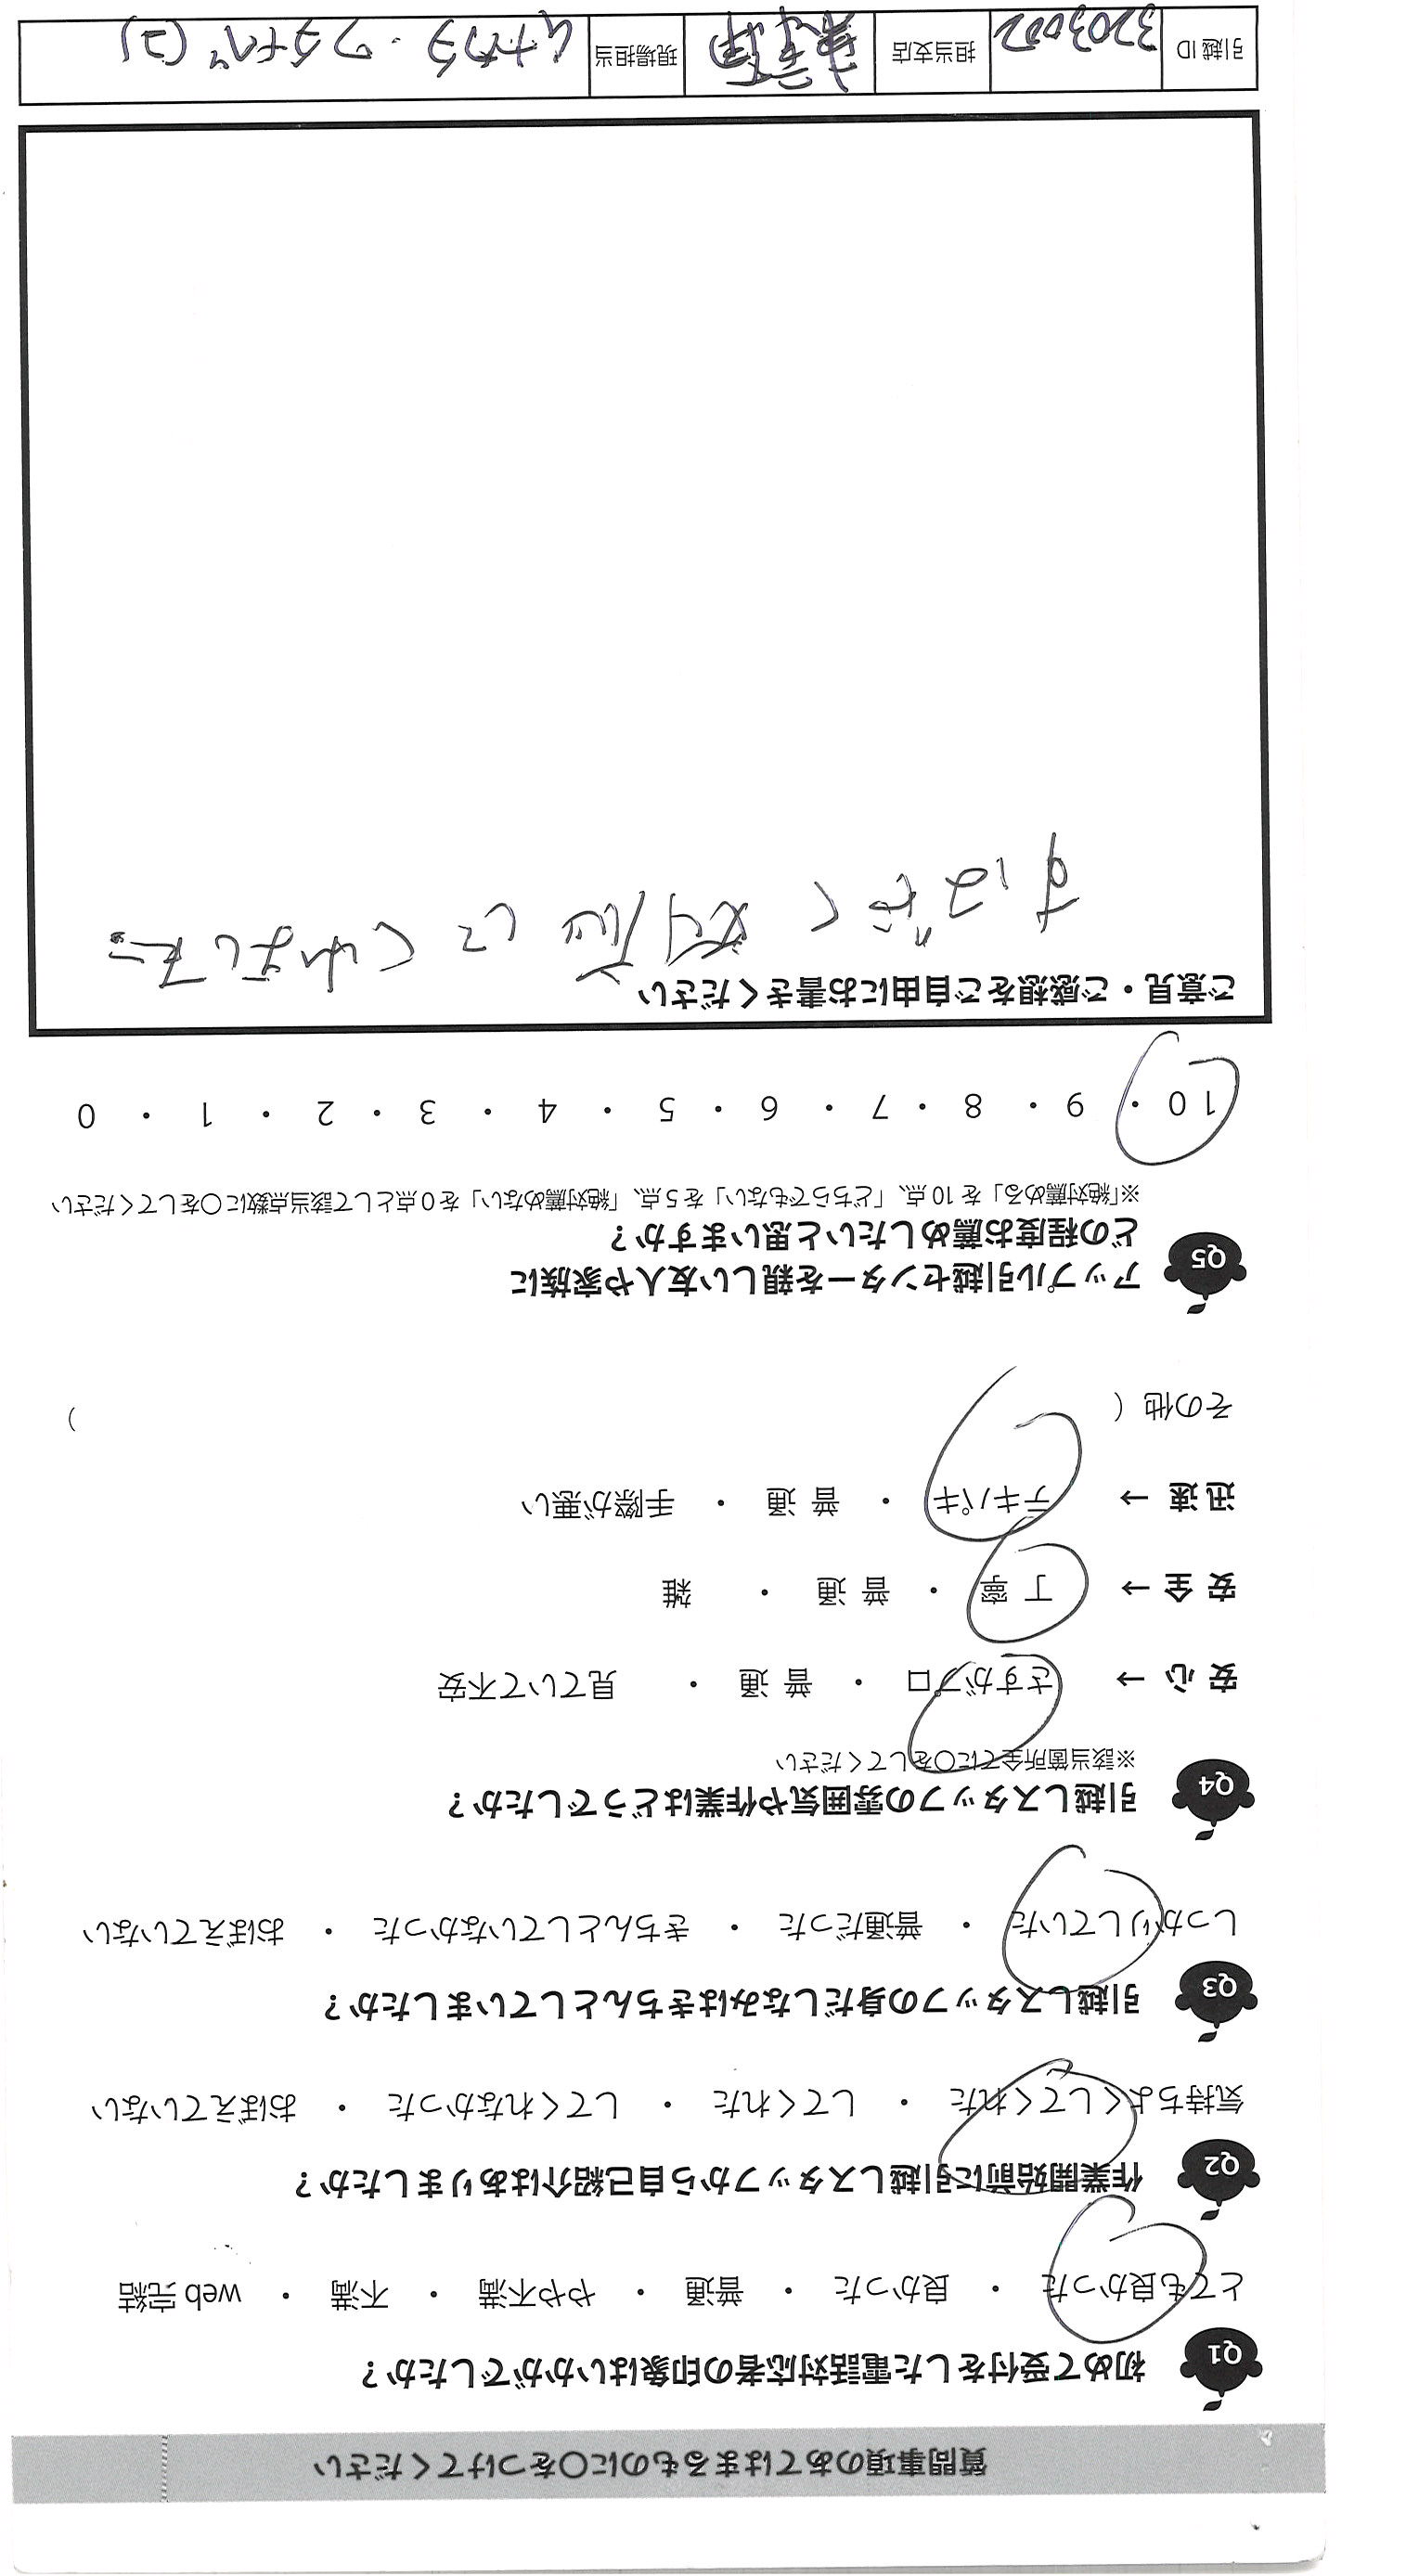 質問事項のあてはまるものに○をつけてください
Q1 初めて受付をした電話対応者の印象はいかがでしたか？
とても良かった ・ 良かった ・ 普通 ・ やや不満 ・ 不満 ・ web 完結
Q2 作業開始前に引越しスタッフから自己紹介はありましたか？
気持ちよくしてくれた ・ してくれた ・ してくれなかった ・ おぼえていない
Q3 引越しスタッフの身だしなみはきちんとしていましたか？
しっかりしていた ・ 普通だった ・ きちんとしていなかった ・ おぼえていない
Q4 引越しスタッフの雰囲気や作業はどうでしたか？
※該当箇所全てに○をしてください
安 心 → さすがプロ ・ 普 通 ・ 見ていて不安
安 全 → 丁 寧 ・ 普 通 ・ 雑
迅 速 → テキパキ ・ 普 通 ・ 手際が悪い
その他（ ）
Q5 アップル引越センターを親しい友人や家族に
どの程度お薦めしたいと思いますか？
※「絶対薦める」を 10 点、「どちらでもない」を 5 点、「絶対薦めない」を 0 点として該当点数に○をしてください
10 ・ 9 ・ 8 ・ 7 ・ 6 ・ 5 ・ 4 ・ 3 ・ 2 ・ 1 ・ 0
ご意見・ご感想をご自由にお書きください
すばやく対応してくれました
引越 ID 3203002 担当支店 現場担当